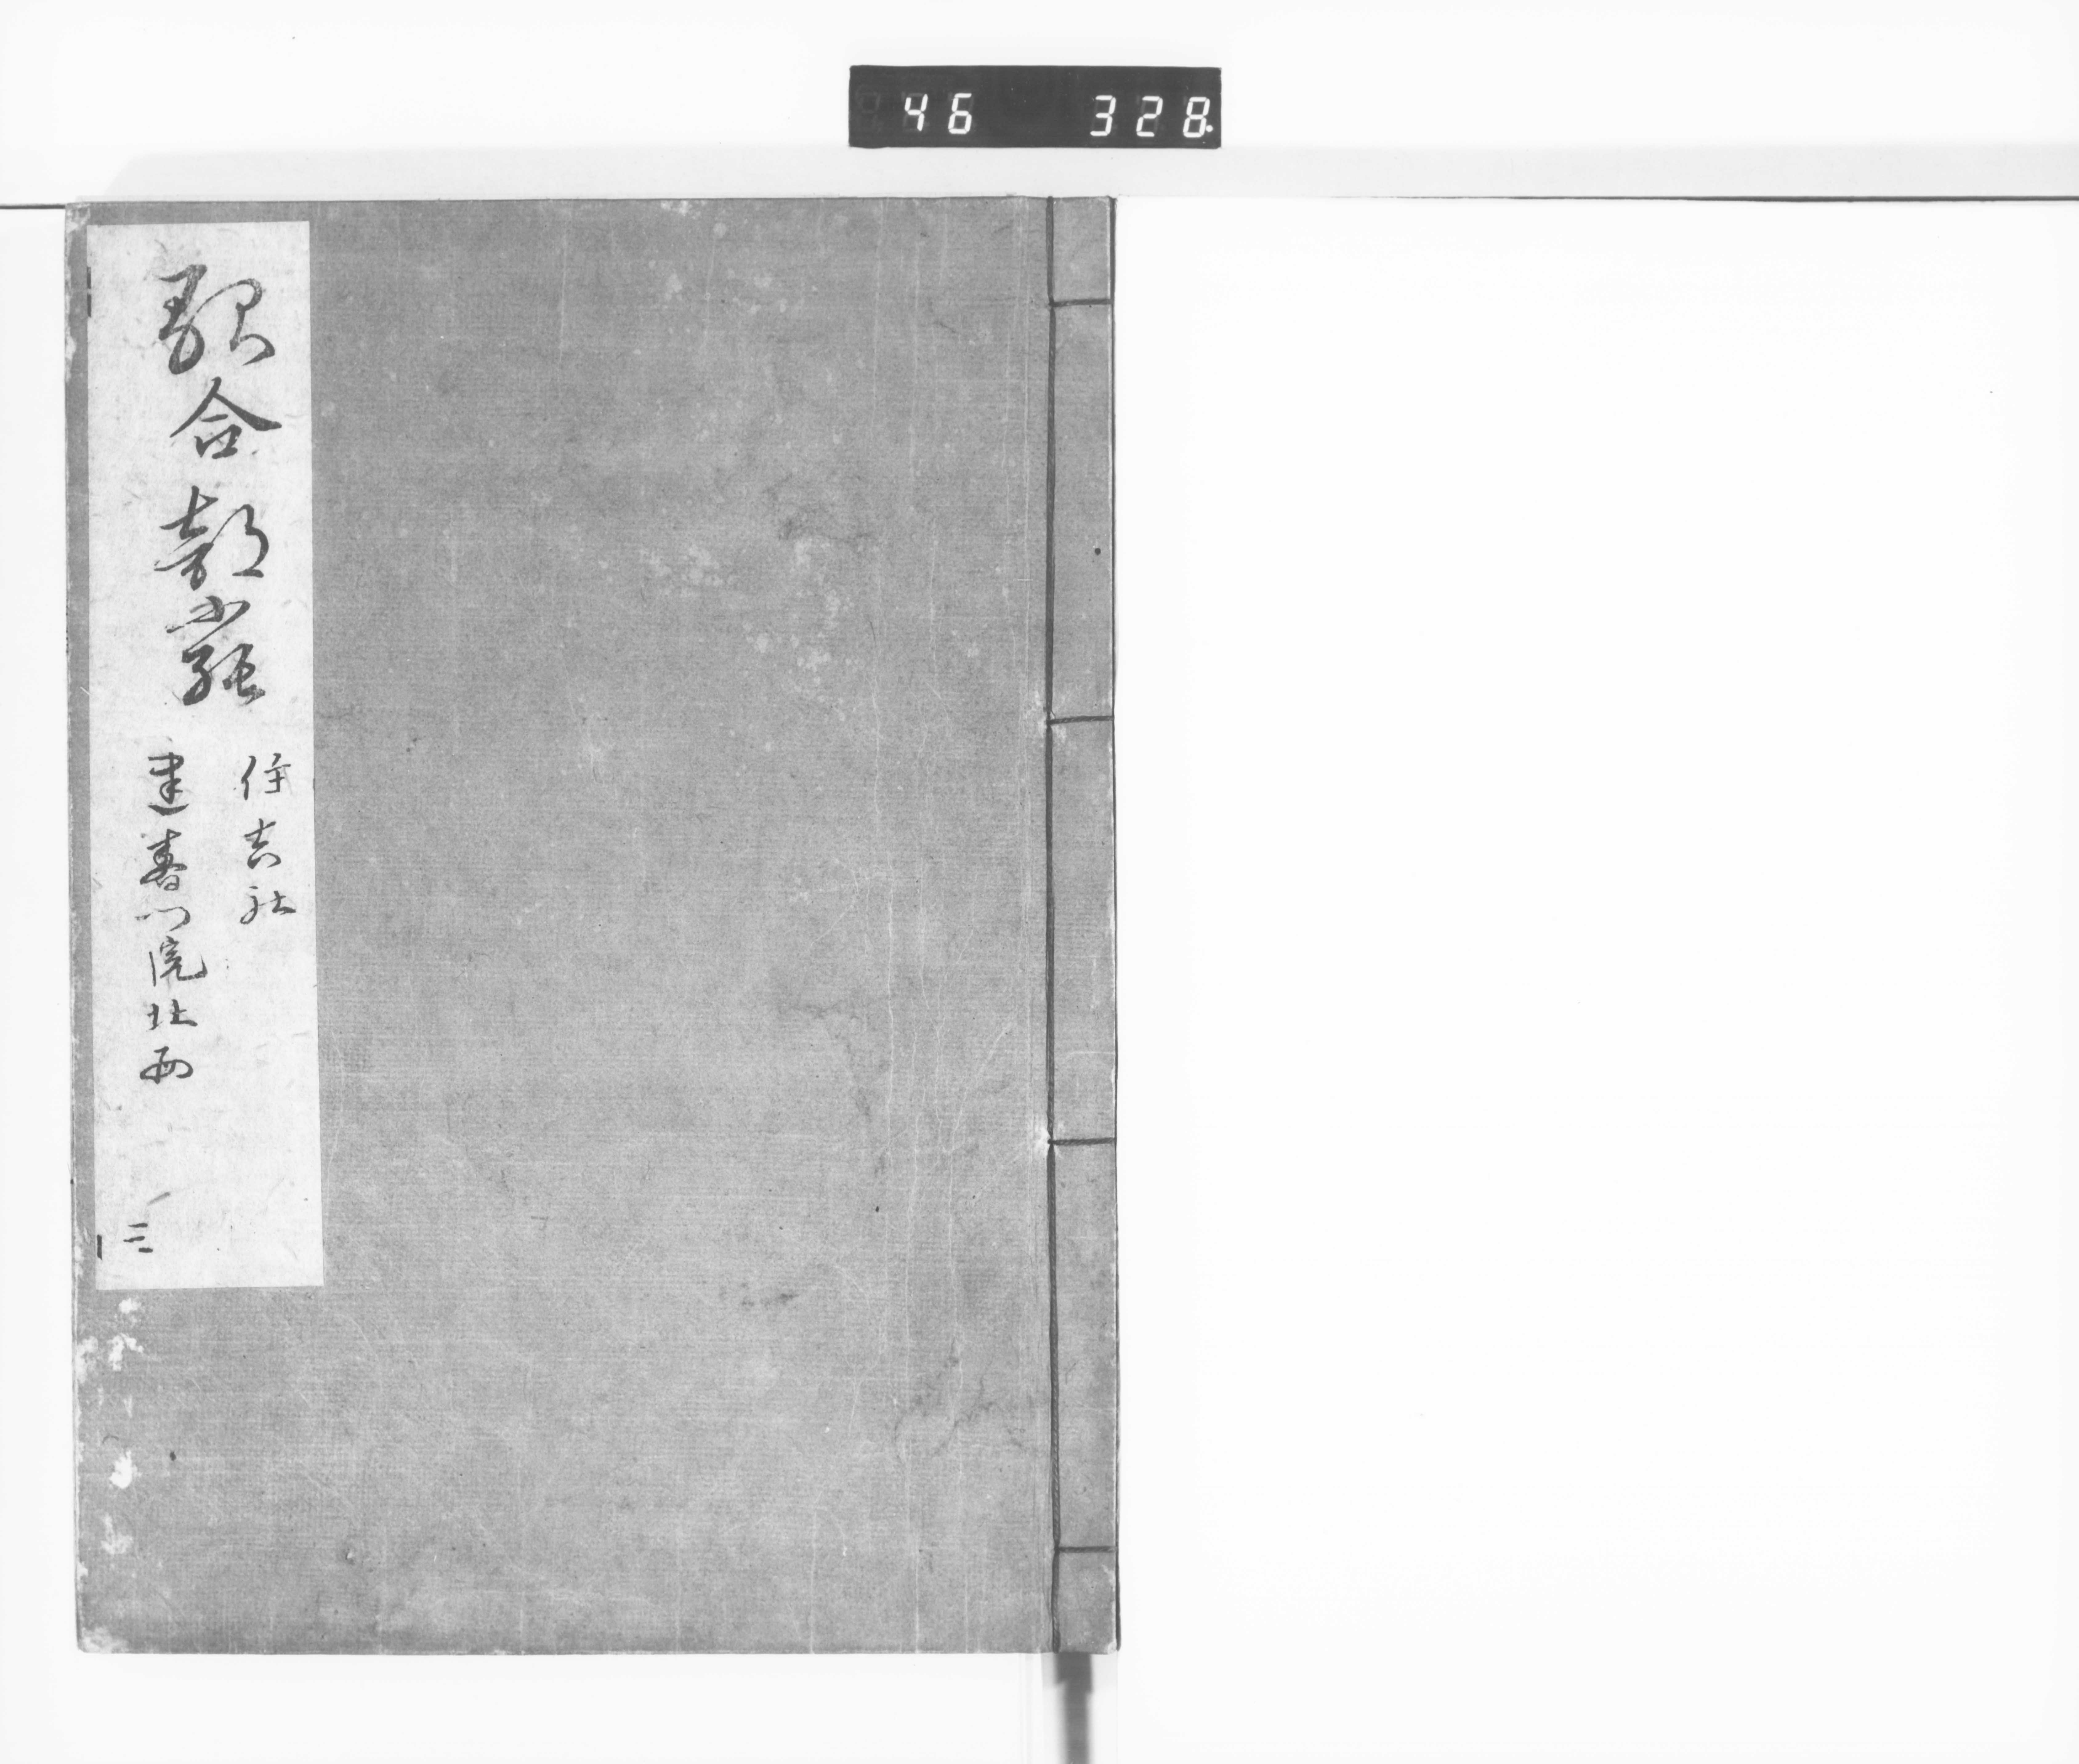 46 328.
歌合部類
住吉社
建春門院北面
三